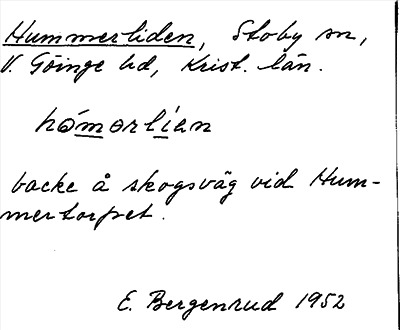 Hummerliden, Stoby sn,
V. Göinge hd, Krist. län.
hómorlían
backe å skogsväg vid Hum-
mertorpet.
E. Bergenrud 1952